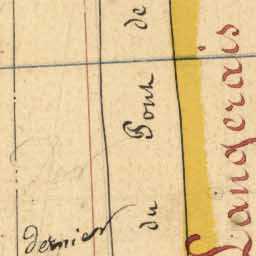 du Pont de
Langerais
dernier